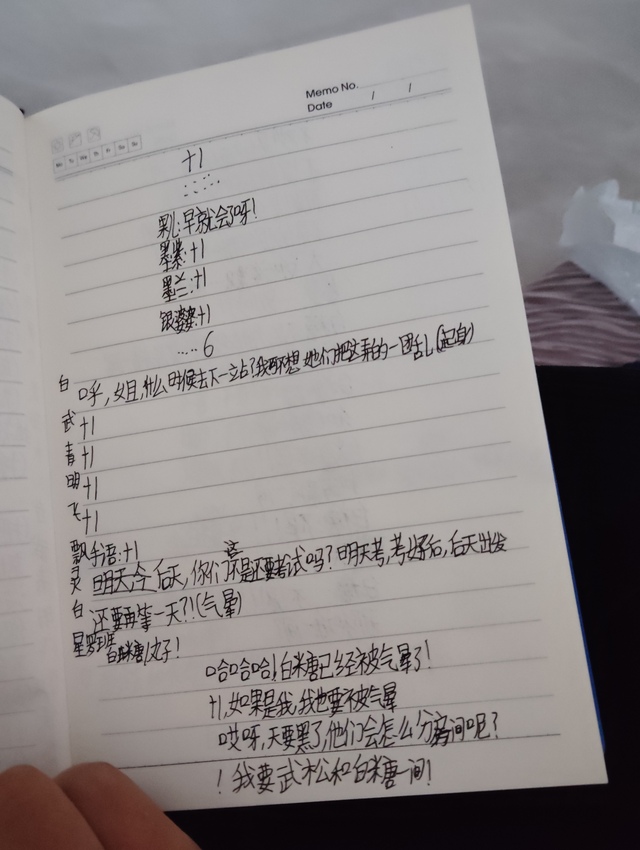 Memo No.
Date / /
Mo Tu We Th Fr Sa Su
+1
……
果儿:早就会了呀!
墨紫:+1
墨兰:+1
银婆婆:+1
……6
白 呼,姐,什么时候去下一立占?我可不想她们把这弄的一团乱(起身)
武 +1
青 +1
明 +1
飞 +1
飘 手语:+1
灵 明天今后天,你们这不是还要考试吗?明天考,考好后,后天出发
白 还要再等一天?!(气晕)
星罗班 白糖!丸子!
哈哈哈!白糖已经被气晕了!
+1,如果是我,我也要被气晕
哎呀,天要黑了,他们会怎么分房间呢?
!我要武松和白糖一间!